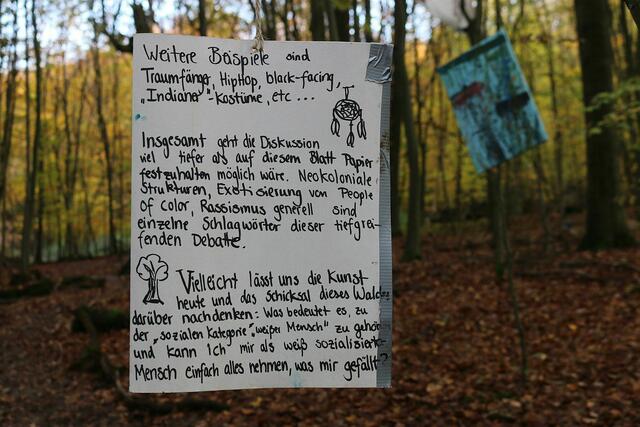 Weitere Beispiele sind
Traumfänger, HipHop, black-facing,
„Indianer"-kostüme, etc...
Insgesamt geht die Diskussion
viel tiefer als auf diesem Blatt Papier
festzuhalten möglich wäre. Neokoloniale
Strukturen, Exotisierung von People
of Color, Rassismus generell sind
einzelne Schlagwörter dieser tiefgrei-
fenden Debatte.
Vielleicht lässt uns die Kunst
heute und das Schicksal dieses Waldes
darüber nachdenken: Was bedeutet es, zu
der „sozialen Kategorie „weißer Mensch" zu gehören
und kann Ich mir als weiß sozialisierter
Mensch einfach alles nehmen, was mir gefällt?